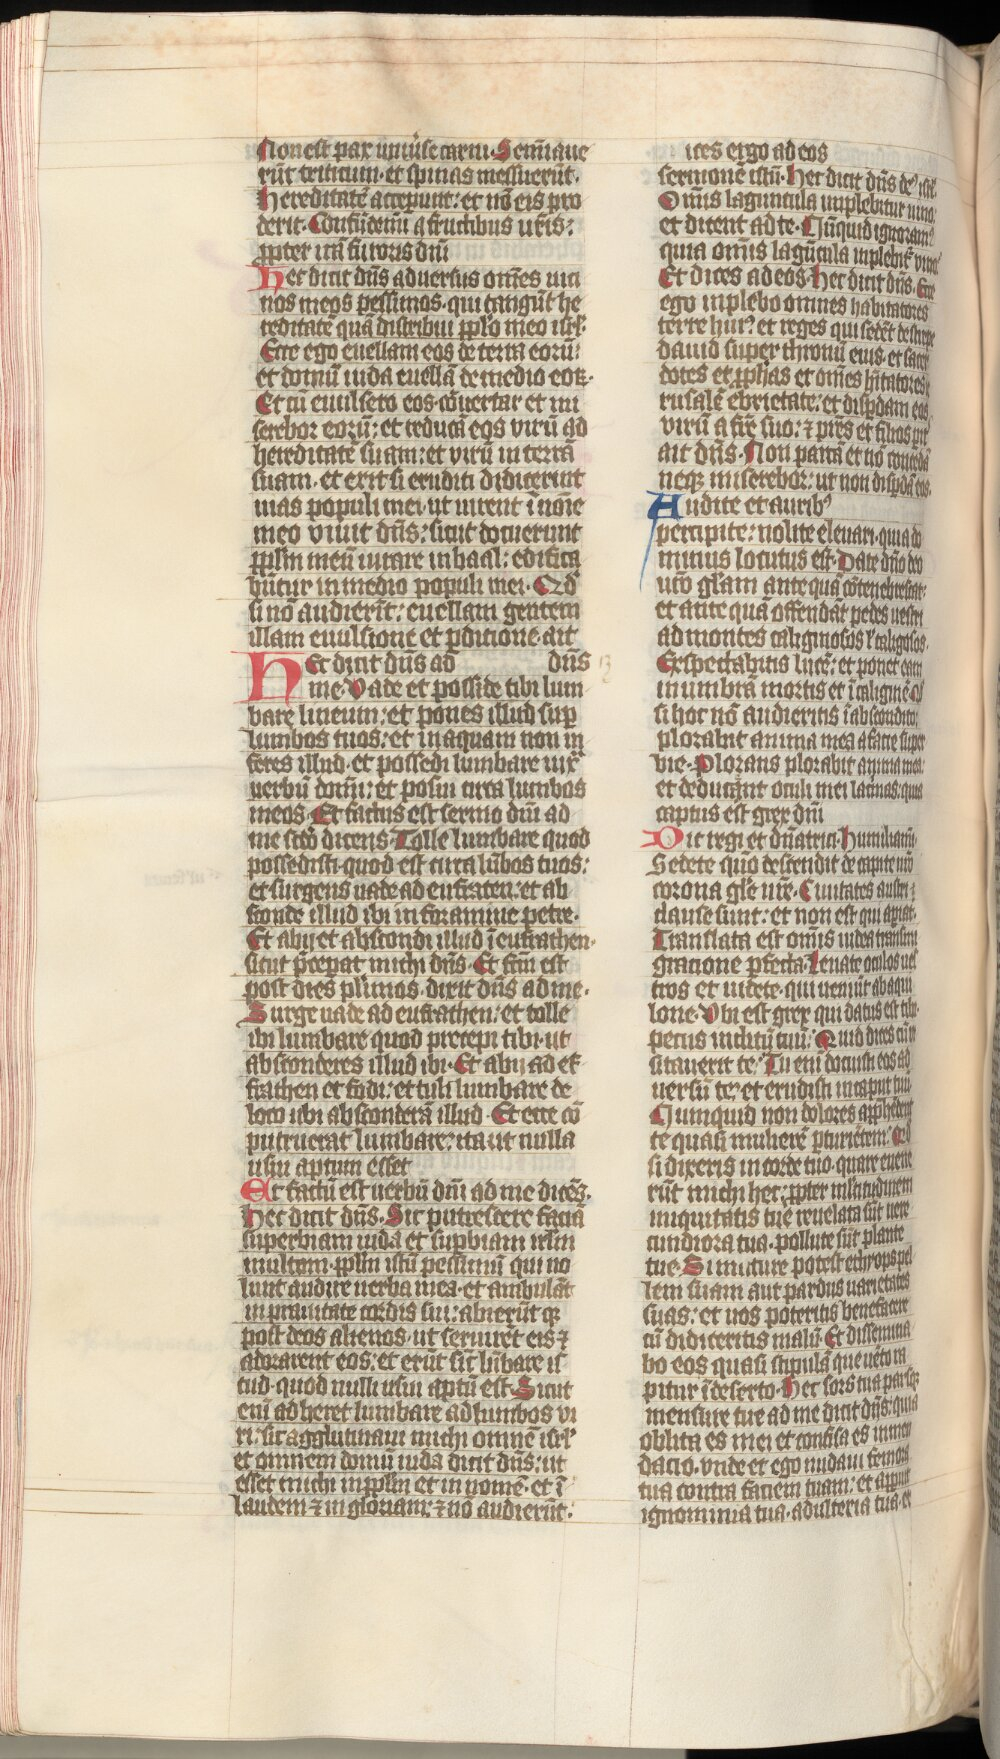 Non est pax uniũse carni. Semĩaue
rũt triticum. et spinas messuerũt.
hereditatẽ acceperunt: et nõ eis pro
derit. Confũdemĩ a fructibus vr̃is:
ꝓpter irã furoris dñi
Hec dicit dñs aduersus om̃es uici
nos meos pessimos. qui tangũt he
reditatẽ quã distribui pplo meo isr̃l.
Ecce ego euellam eos de terra eorũ:
et domũ iuda euellã de medio eoꝝ.
Et cũ euulsero eos. cõuertar et mi
serebor eorũ: et reducã eos virũ ad
hereditatẽ suam: et virũ in terrã
suam. et erit si eruditi didicerint
uias populi mei. ut iurent ĩ nõie
meo viuit dñs: sicut docuerunt
pplm meũ iurare in baal: edifica
bũtur in medio populi mei. Qd̾
si nõ audierĩt: euellam gentem
illam euulsione et ꝑditione ait
Hec dicit dñs ad dñs 13
me. Vade et posside tibi lum
bare lineum: et pones illud sup
lumbos tuos: et in aquam non in
feres illud. et possedi lumbare iux̃
uerbũ domĩ: et posui circa lumbos
meos. Et factus est sermo dñi ad
me scd̾o dicens. Tolle lumbare quod
possedisti. quod est circa lũbos tuos:
et surgens uade ad eufraten: et ab
sconde illud ibi in foramine petre.
Et abij et abscondi illud ĩ eufrathen.
sicut p̃cepat michi dñs. Et fc̃m est
post dies plimos. dixit dñs ad me.
Surge uade ad eufrathen: et tolle
ibi lumbare quod precepi tibi. ut
absconderes illud ibi. Et abij ad ef
frathen et fodi: et tuli lumbare de
loco ubi absconderã illud. Et ecce cõ
putruerat lumbare: ita ut nulla
usui aptum esset
Et factũ est uerbũ dñi ad me dicẽs.
Hec dicit dñs. Sic putrescere faciã
superbiam iuda et supbiam irl̃m
multam. pplm istũ pessimũ qui no
lunt audire uerba mea. et ambulãt
in prauitate cordis sui: abierũt qꝫ
post deos alienos. ut seruirẽt eis ⁊
adorarent eos: et erũt sic lũbare is
tud. quod nulli usui aptũ est. Sicut
enĩ adheret lumbare ad lumbos vi
ri: sic agglutinaui michi omnẽ isr̃l
et omnem domũ iuda dicit dñs: ut
esset michi in pplm et in nomẽ. et ĩ
laudem ⁊ in gloriam: ⁊ nõ audierũt:
ices ergo ad eos
sermonẽ istũ. Hec dicit dñs de⁹ isr̃l
Om̃is laguncula implebitur uino:
et dicent ad te. Nũquid ignoram⁹
quia om̃is lagũcula inplebit̾ vino:
Et dices ad eos. Hec dicit dñs. Ecce
ego inplebo omnes habitatores
terre hui⁹: et reges qui sedẽt de stirpe
dauid super thronũ eius. et sacer
dotes et ꝓphãs et om̃es hĩtatores ie
rusalẽ ebrietate: et disꝑdam eos
virũ a fr̃e suo: ⁊ pr̃es et filios pit̾
ait dñs. Non parcã et nõ concedã
neqꝫ miserebor: ut non disꝑdã eos.
Audite et aurib⁹
percipite: nolite eleuari. quia do
minus locutus est. Date dño deo
uro gl̃am ante quã cõtenebrescat:
et ante quã offendãt pedes uestri
ad montes caliginosos l̾ caligosos.
Exspectabitis lucẽ: et ponet eam
in umbrã mortis et ĩ caliginẽ Qd̾
si hoc nõ audieritis ĩ abscondito:
plorabit anima mea a facie super
bie. Plorans plorabit anima mea:
et deducãnt oculi mei lac̃mas: quia
captus est grex dñi
Dic regi et dñatrici. Humiliamĩ.
Sedete quõ descendit de capite vr̃o
corona gl̃e vr̃e. Ciuitates austri
clause sunt: et non est qui aꝑiat.
Translata est om̃is iudea transmi
gracione ꝑfecta. Leuate oculos ves
tros et uidete. qui ueniũt ab aqui
lone. Vbi est grex qui datus est tibi:
pecus inclitũ tuũ: Quid dices cũ vi
sitauerit te: Tu enĩ docuisti eos ad
uersũ te: et erudisti in caput tuũ.
Numquid non dolores app̃hẽdent
te quasi mulierẽ ꝑturiẽtem: Qd̾
si dixeris in corde tuo. quare euene
rũt michi hec: ꝓpter ml̃titudinem
iniquitatis tue reuelata sũt uere
cundiora tua. pollute sũt plante
tue. Si mutare potest ethyops pel
lem suam aut pardus uarietates
suas: et uos poteritis benefacere
cũ didiceritis malũ. Et dissemina
bo eos quasi stipulã que uẽto ra
pitur ĩ deserto. Hec sors tua parsqꝫ
mensure tue ad me dicit dñs: quia
oblita es mei et confisa es in men
dacio. vnde et ego nudaui femora
tua contra faciem tuam: et apparuit
ignominia tua. adulteria tua. et